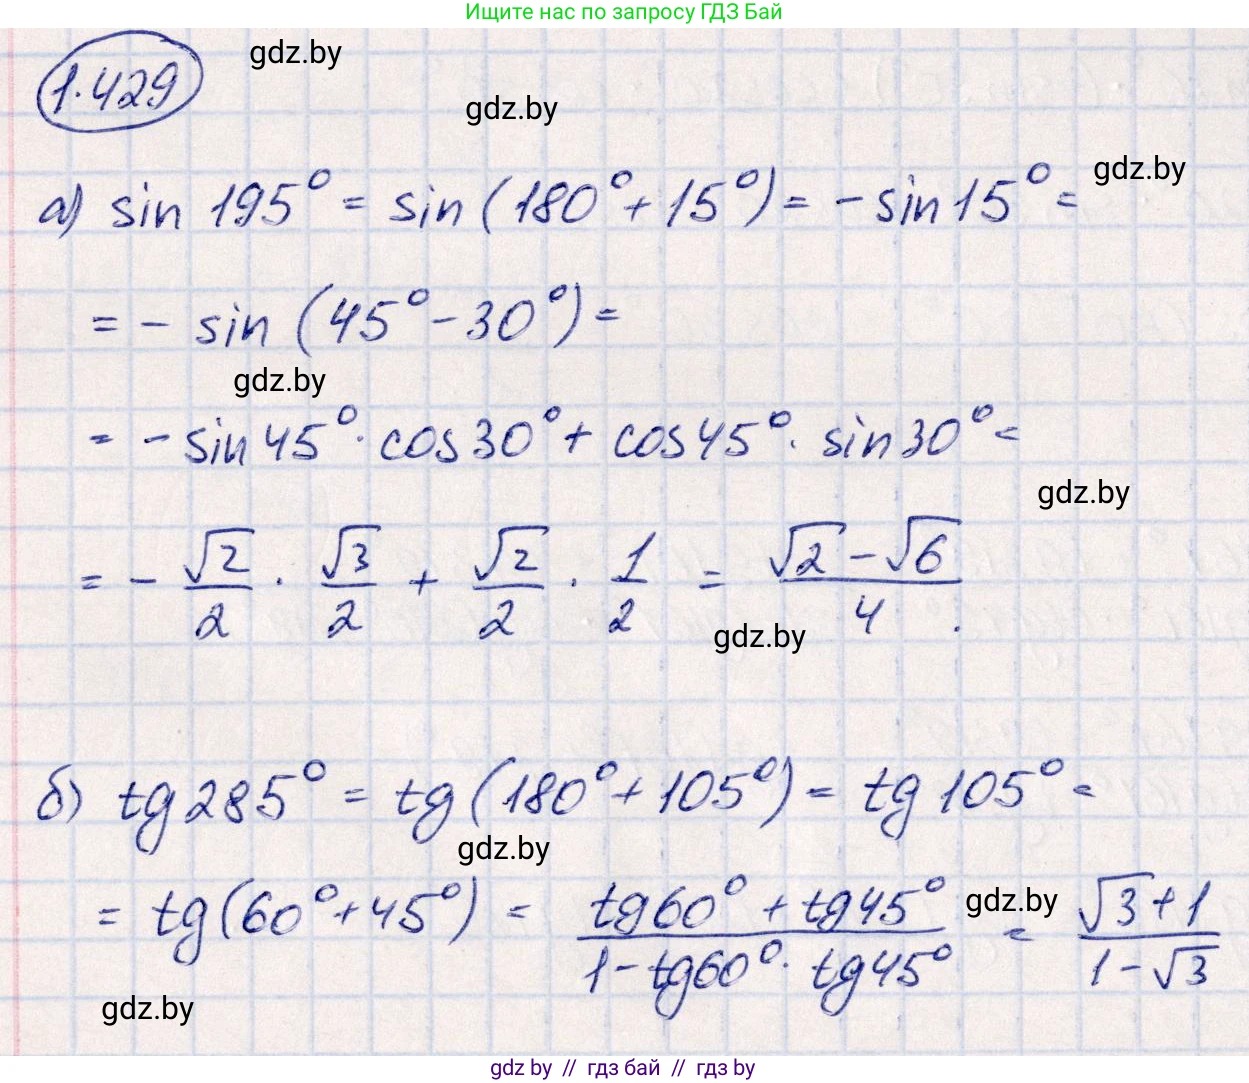 Ищите нас по запросу ГДЗ Бай
1.429
gdz.by
gdz.by
gdz.by
а) sin 195° = sin (180° + 15°) = - sin 15° =
= - sin (45° - 30°) =
gdz.by
= - sin 45° · cos 30° + cos 45° · sin 30° =
gdz.by
= - √2/2 · √3/2 + √2/2 · 1/2 = (√2 - √6)/4.
gdz.by
б) tg 285° = tg (180° + 105°) = tg 105° =
gdz.by
= tg (60° + 45°) = (tg 60° + tg 45°)/(1 - tg 60° · tg 45°) = (√3 + 1)/(1 - √3)
gdz.by
gdz.by
gdz.by // гдз бай // gdz.by